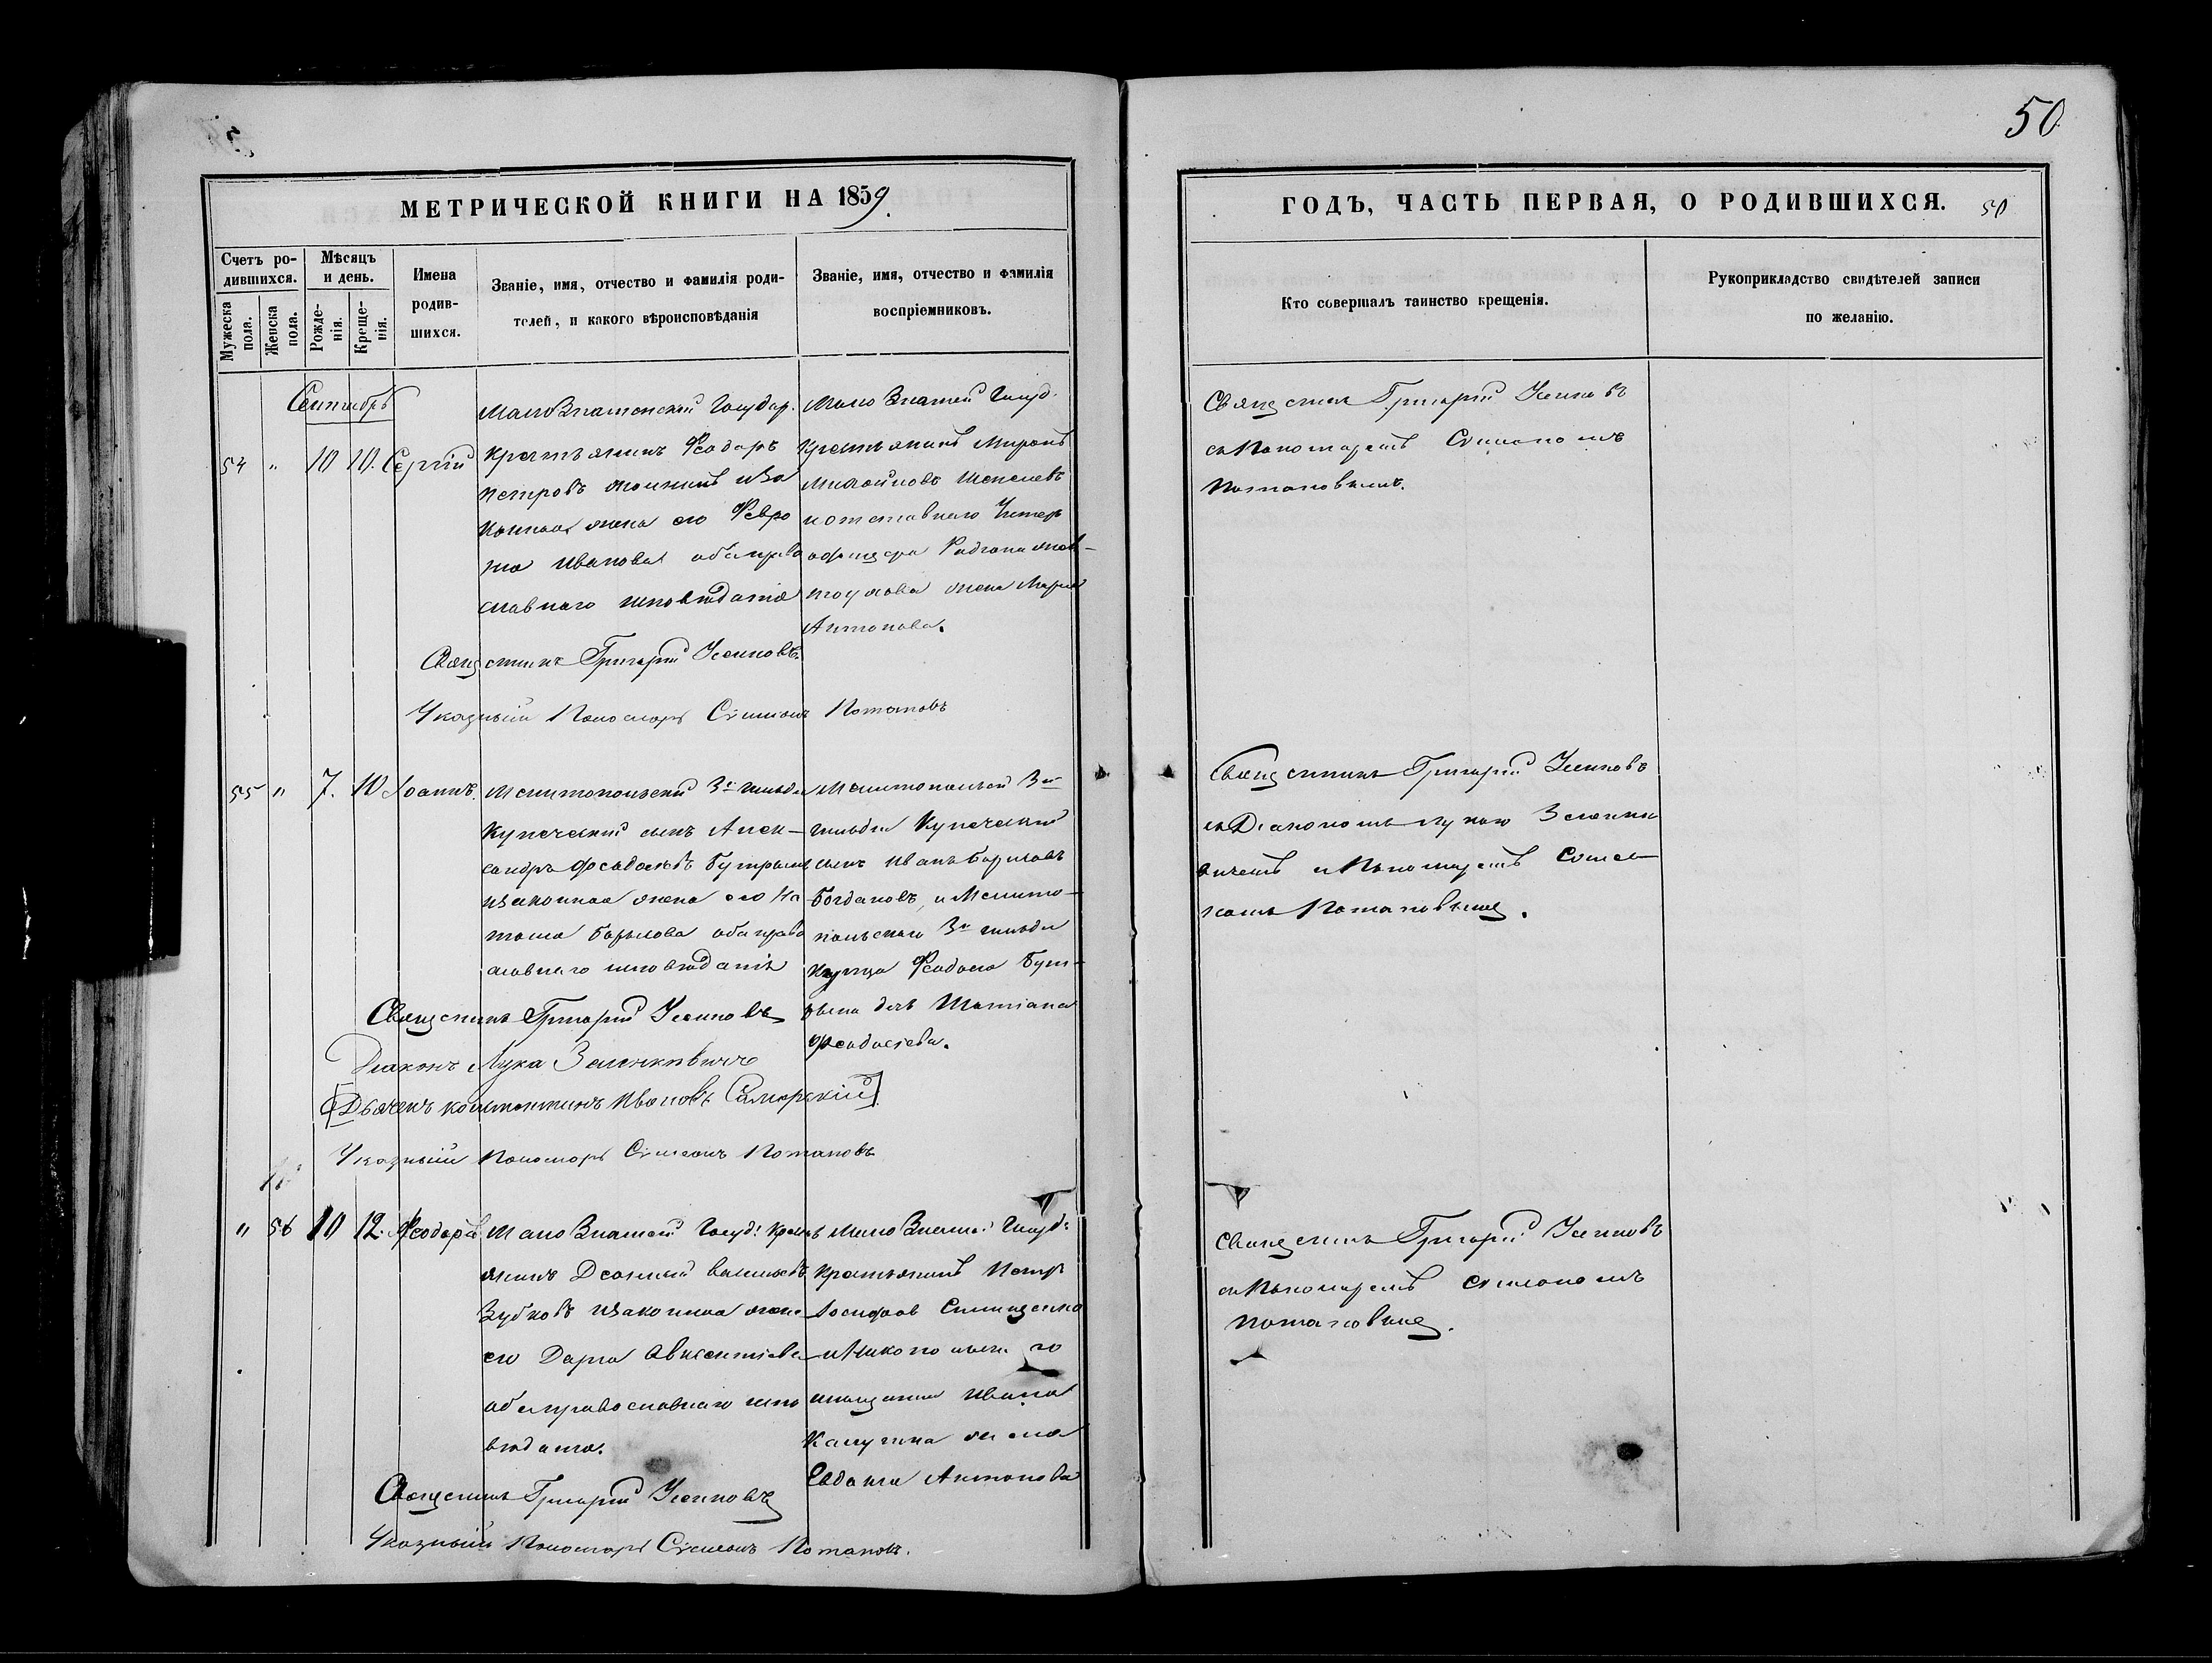 50
МЕТРИЧЕСКОЙ КНИГИ НА 1859.
Счетъ ро-
дившихся.
Мужеска пола.
Женска пола.
Мѣсяцъ
и день.
Рожде-
нія.
Креще-
нія.
Имена
родив-
шихся.
Званіе, имя, отчество и фамилія роди-
телей, и какого вѣроисповѣданія
Званіе, имя, отчество и фамилія
воспріемниковъ.
Сентябрь
54 " 10 10. Сергій
МалоЗнаменскій Государ.
крестьянинъ Феодоръ
Петровъ иза
конная жена его Февро
ния Иванова оба право
славнаго исповѣданія
Мало Знамен Госуд.
Крестьянинъ Миронъ
иотставнаго Унтеръ
офицера Родиона
жена Мария
Антонова.
Священникъ Григорій Усиновъ
Указный Пономарь Сѵмеонъ Потаповъ
55 " 7. 10 Іоаннъ.
Мелитопольскій 3й гильди
Купеческий сынъ Алек-
сандръ Феодосьевъ
изаконная жена его На
талия Борисова оба право
славнаго исповѣданія
Мелитопольскй 3й
гильдии Купеческий
сынъ Иванъ Борисовъ
Богдановъ, и Мелито-
польскаго 3й гильди
Купца Феодосия
дочь Татиана
Феодосіева.
Священникъ Григорий Усиновъ
Диаконъ Лука
[Дьячекъ Константинъ Ивановъ Самарскій]
Указный Пономарь Сѵмеонъ Потаповъ
" 56 10 12. Феодора
Мало Знамен Госуд: Кресть
янинъ Васильевъ
Зубковъ изаконная жена
его Дария Авксентиева
оба православнаго испо
вѣдания.
Мало Знамен: Госуд:
крестьянинъ Петръ
Іосифовъ
мѣщанина Ивана
жена
Евдокия Антонова
Священникъ Григорий Усиновъ
Указный Пономарь Сѵмеонъ Потаповъ.
ГОДЪ, ЧАСТЬ ПЕРВАЯ, О РОДИВШИХСЯ. 50
Кто совершалъ таинство крещенія.
Рукоприкладство свидѣтелей записи
по желанію.
Священникъ Григорій Усиновъ
съ Пономаремъ Сѵмеономъ
Потаповымъ.
Священникъ Григорий Усиновъ
съ Диакономъ Лукою
и Пономаремъ Сѵмео
номъ Потаповымъ.
Священникъ Григорій Усиновъ
съ Пономаремъ Сѵмеономъ
Потаповымъ.